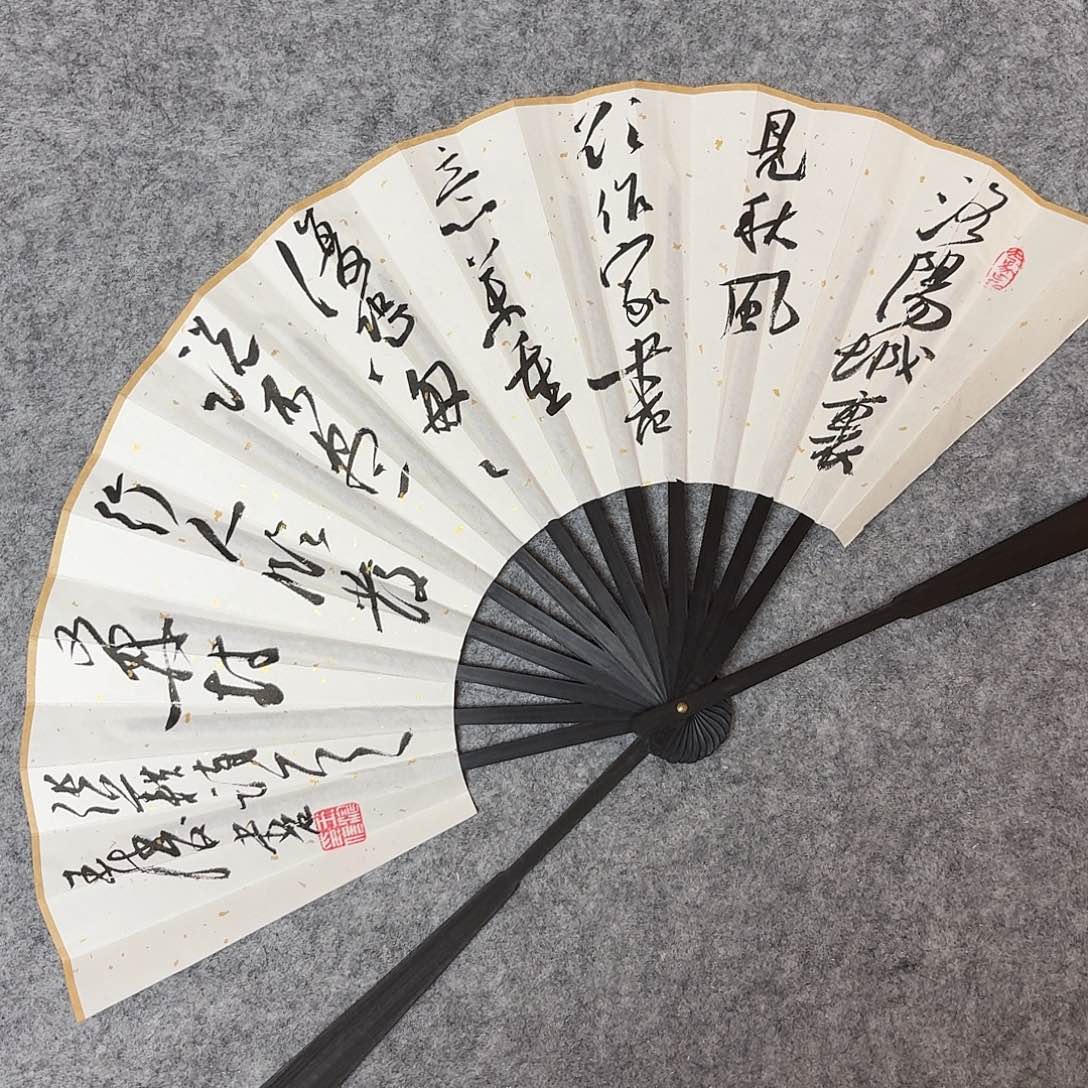 洛陽城裏
見秋風
欲作家書
意萬重
復恐匆匆
說不盡
行人臨發
又開封